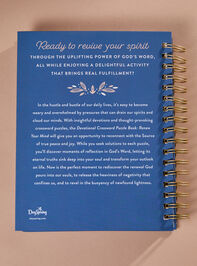 Ready to revive your spirit
THROUGH THE UPLIFTING POWER OF GOD'S WORD,
ALL WHILE ENJOYING A DELIGHTFUL ACTIVITY
THAT BRINGS REAL FULFILLMENT?
In the hustle and bustle of our daily lives, it's easy to become
weary and overwhelmed by pressures that can drain our spirits and
cloud our minds. With insightful devotions and thought-provoking
crossword puzzles, the Devotional Crossword Puzzle Book: Renew
Your Mind will give you an opportunity to reconnect with the Source
of true peace and joy. While you seek solutions to each puzzle,
you'll discover moments of reflection in God's Word, letting its
eternal truths sink deep into your soul and transform your outlook
on life. Now is the perfect moment to rediscover the renewal God
pours into our souls, to release the heaviness of negativity that
confines us, and to revel in the buoyancy of newfound lightness.
DaySpring
dayspring.com